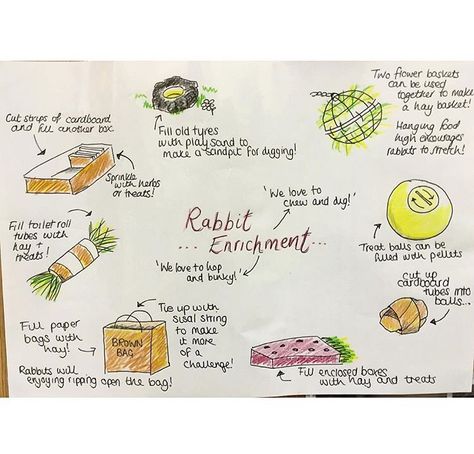 Two flower baskets
can be used
together to make
a hay basket!
Hanging food
high encourages
rabbits to stretch!
Cut strips of cardboard
and fill another box.
Sprinkle
with herbs
or treats!
Fill old tyres
with play sand to
make a sandpit for digging!
'We love to
chew and dig!'
Rabbit
... Enrichment...
'We love to hop
and binky!'
Fill toilet roll
tubes with
hay +
treats!
Treat balls can be
filled with pellets
Cut up
cardboard
tubes into
balls...
Fill paper
bags with
hay!
Rabbits will
enjoying ripping open the bag!
BROWN
BAG
Tie up with
sisal string
to make
it more
of a
challenge!
Fill enclosed boxes
with hay and treats